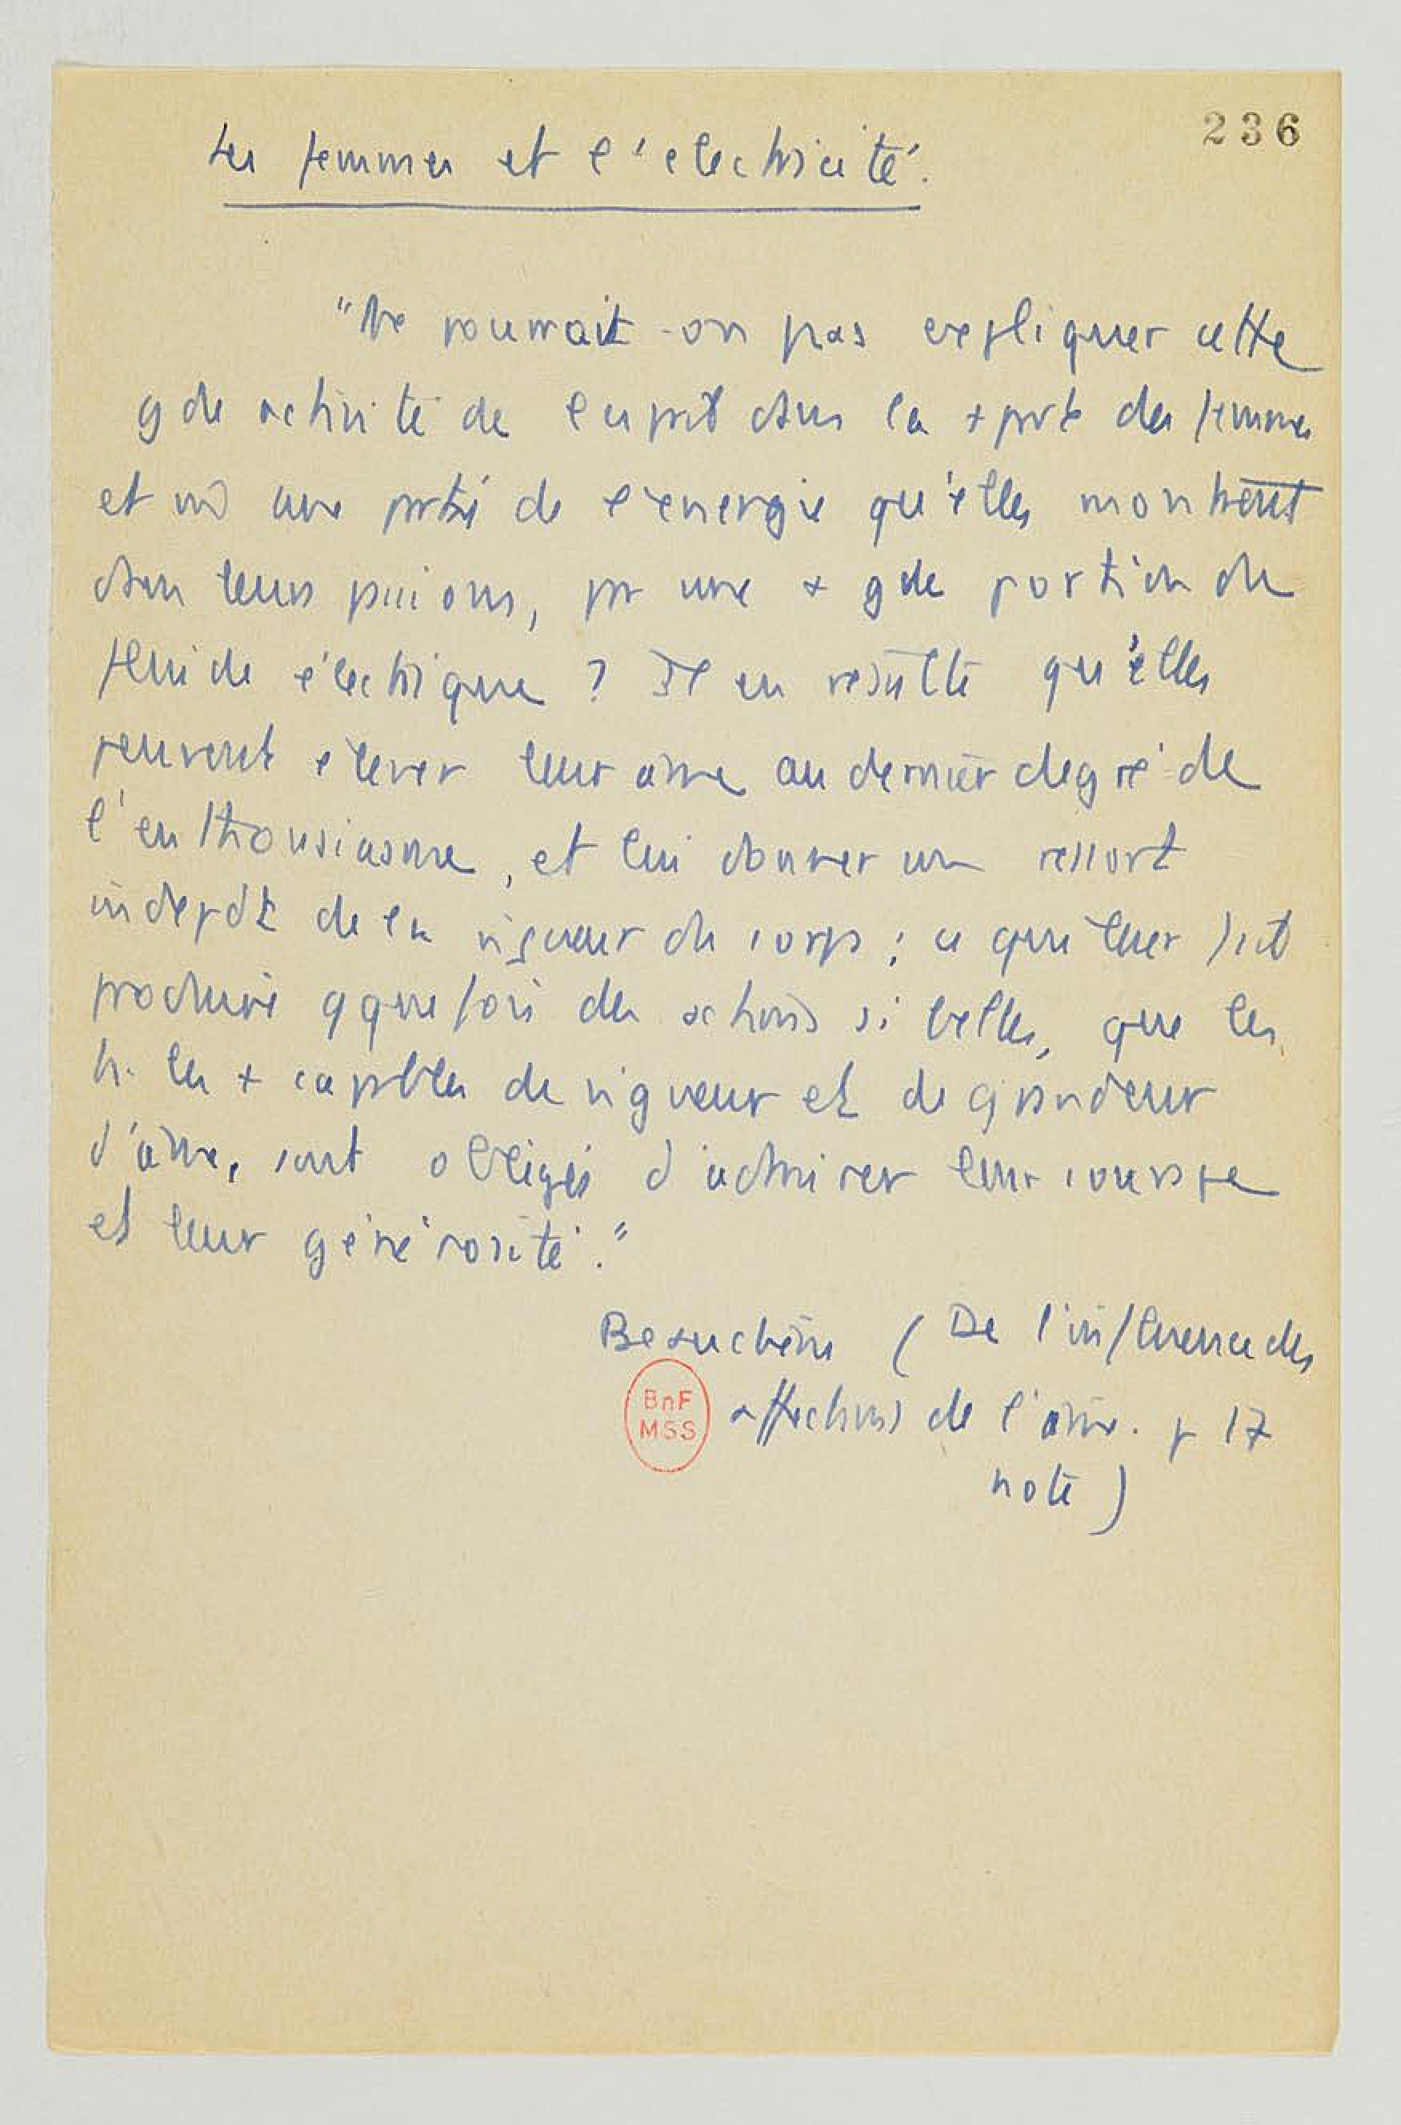 236
Les femmes et l'électricité.
"Ne pourrait-on pas expliquer cette
gde activité de l'esprit dans la + part des femmes
et une partie de l'énergie qu'elles montrent
dans leurs passions, pr une + gde portion du
fluide électrique ? Il en résulte qu'elles
peuvent élever leur âme au dernier degré de
l'enthousiasme, et lui donner un ressort
indepdt de la vigueur du corps ; ce qui leur fait
produire qquefois des actions si belles, que les
h. les + capables de vigueur et de grandeur
d'âme, sont obligés d'admirer leur courage
et leur générosité."
Beauchêne ( De l'influence des
affections de l'âme. p 17
note )
BnF
MSS